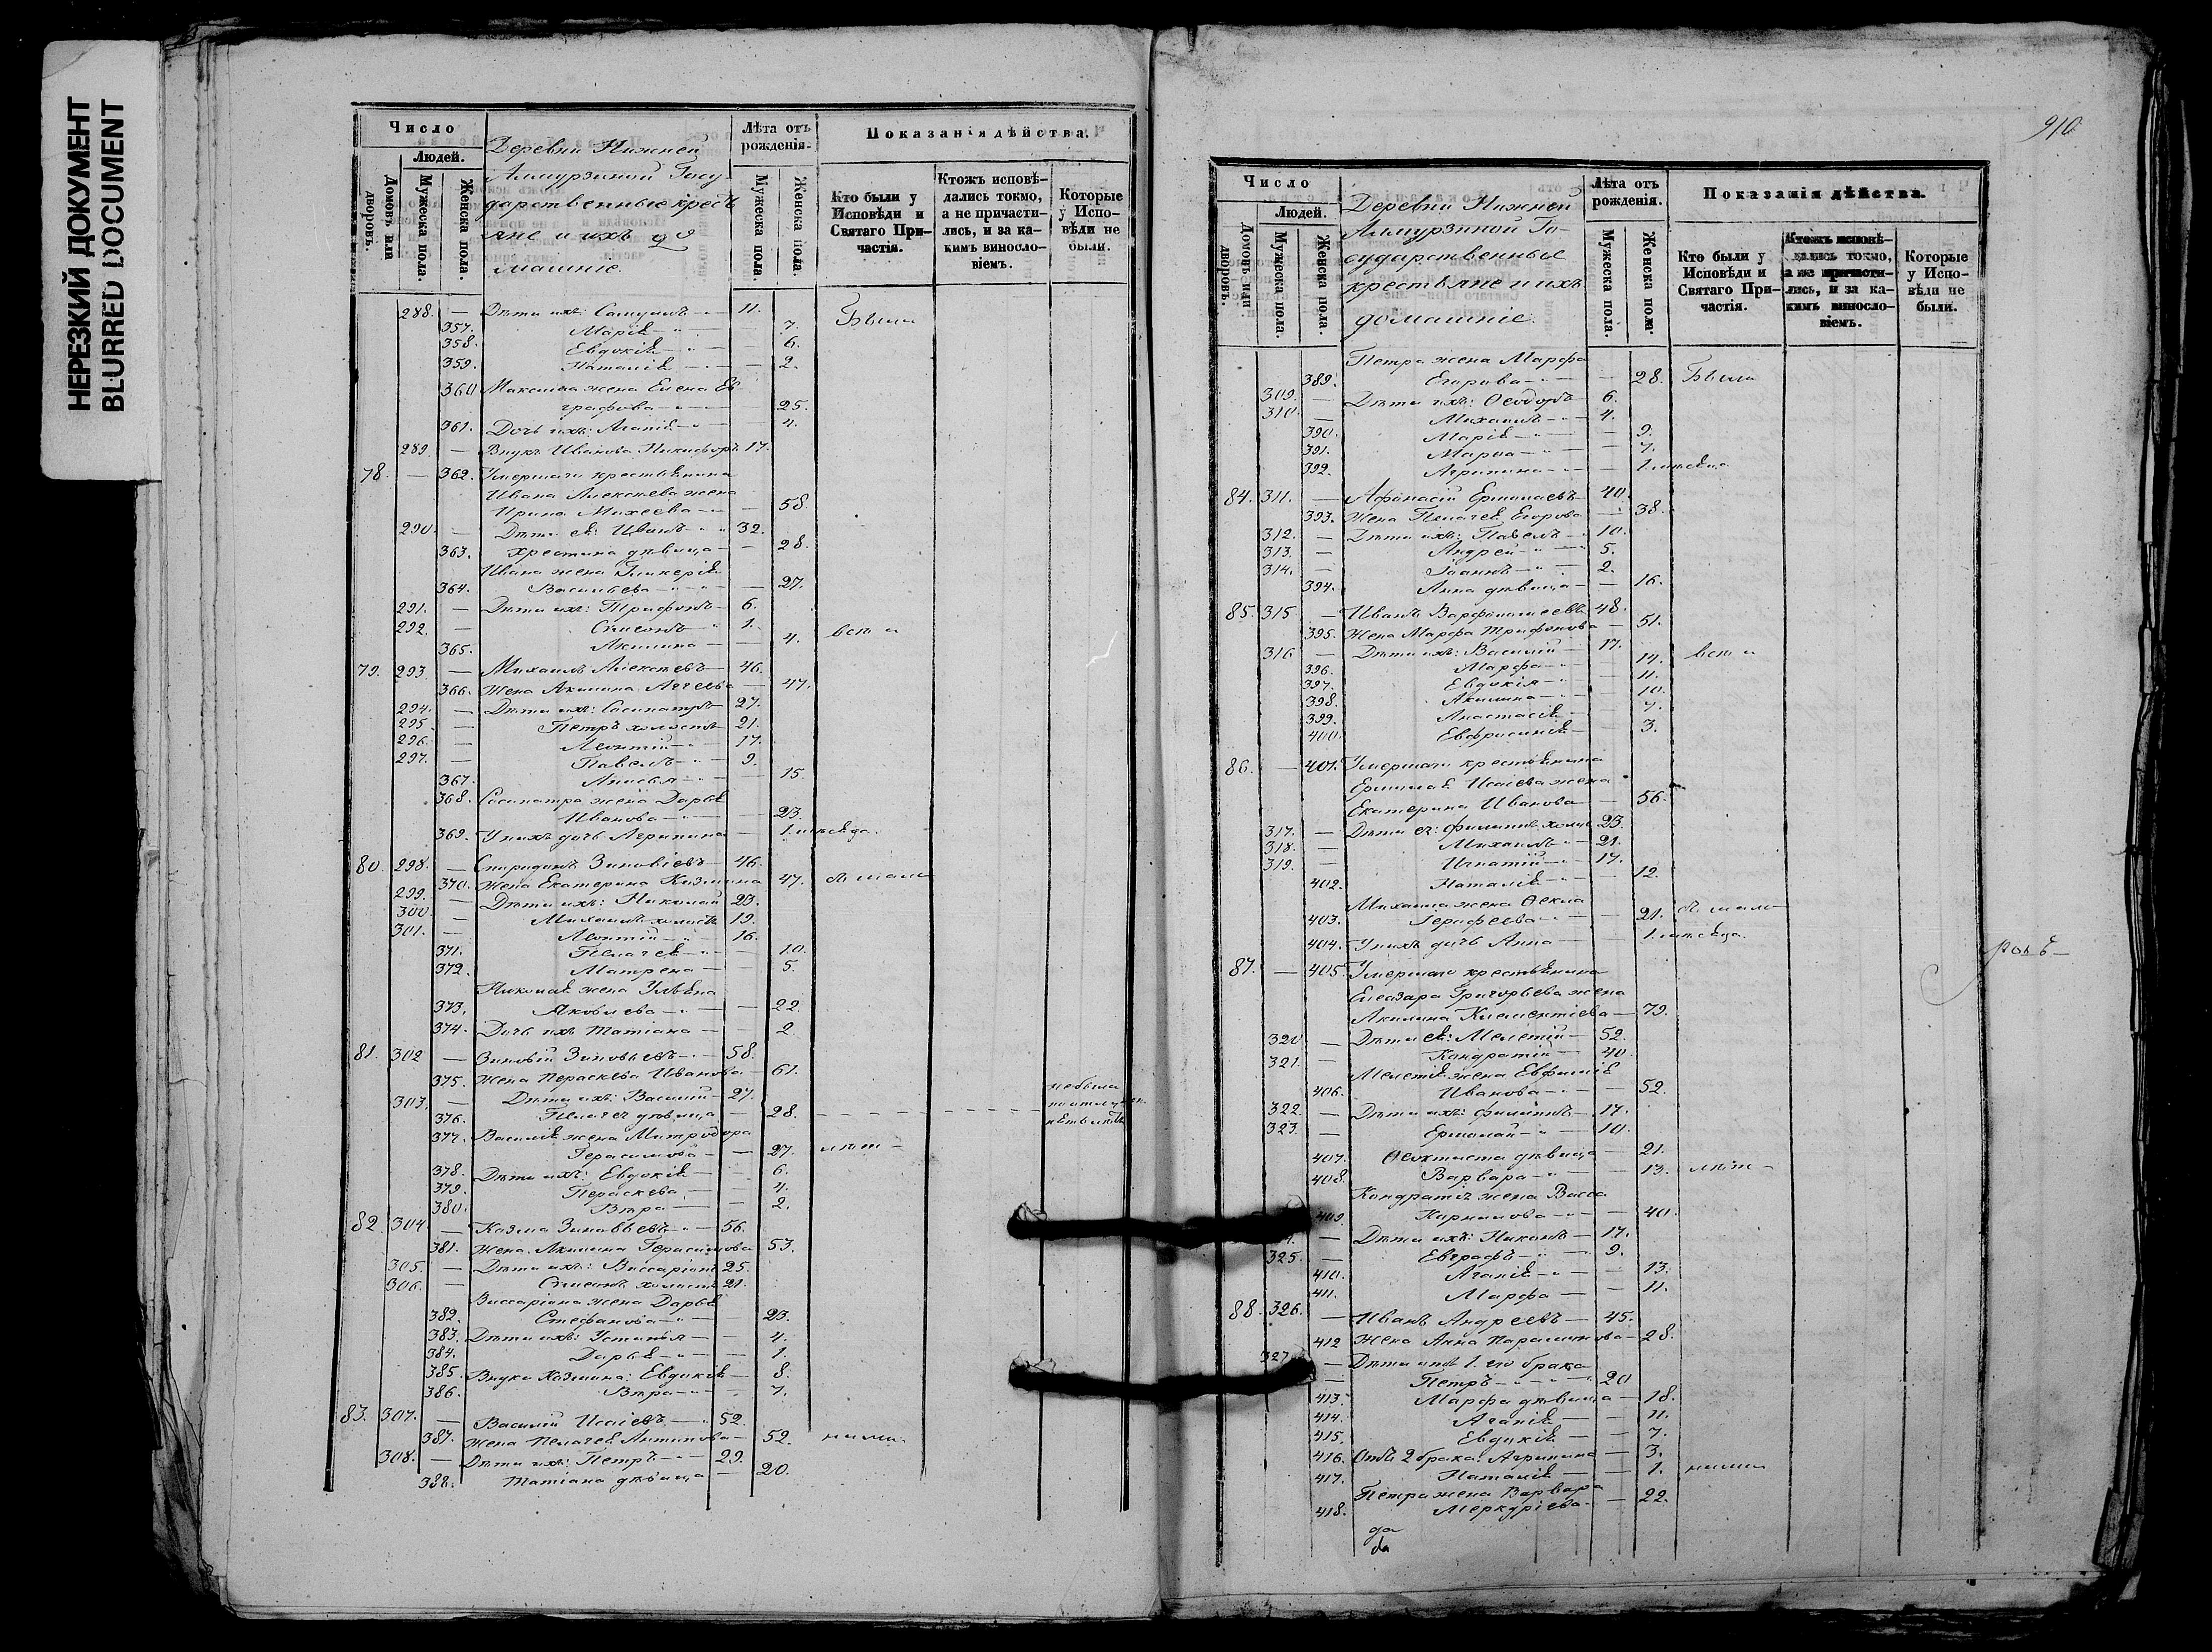 НЕРЕЗКИЙ ДОКУМЕНТ
BLURRED DOCUMENT
Число
Людей.
Домовъ или дворовъ.
Мужеска пола.
Женска пола.
Деревни Нижней
Алмурзиной Госу-
дарственные кресть
яне и ихъ до
машніе.
Лѣта отъ рожденія.
Мужеска пола.
Женска пола.
Показанія дѣйства.
Кто были у Исповѣди и Святаго При-частія.
Ктожъ исповѣ-дались токмо, а не причасти-лись, и за ка-кимъ винословіемъ.
Которые у Испо-вѣди не были.
288. — Дѣти ихъ: Самуилъ — 11. Были
357. Марія — 7.
358. Евдокія — 6.
359. Наталія — 2.
360 Максима жена Елена Ев
графова — 25.
361. Дочь ихъ: Агапія — 4.
289. — Внукъ Иванова Никифоръ 17.
78. — 362. Умершаго крестьянина
Ивана Алексѣева жена
Ирина Михеева — 58.
290. — Дѣти ея: Иванъ — 32.
363. Христина дѣвица — 28.
Ивана жена Гликерія
364. Васильева — 27.
291. — Дѣти ихъ: Трифонъ — 6.
292. — Симеонъ 1.
365. Акилина — 4. всѣ и
79. 293. — Михаилъ Алексѣевъ — 46.
366. Жена Акилина Аггеева — 47.
294. — Дѣти ихъ: Сосипатръ — 27.
295. — Петръ холостъ 21.
296. — Леонтій — 17.
297. — Павелъ — 9.
367. Анисья — 15.
368. Сосипатра жена Дарья
Иванова — 23.
369. У нихъ дочь Агрипина — 1. мѣсяца.
80. 298. — Спиридонъ Зиновіевъ — 46.
370. Жена Екатерина Козмина 47.
299. — Дѣти ихъ: Николай 23.
300. — Михаилъ холостъ 19.
301. — Леонтій — 16.
371. Пелагея — 10.
372. Матрена — 5.
Николая жена Ульяна
373. Яковлева — 22.
374. Дочь ихъ Татіана — 2.
81. 302 — Зиновій Зиновьевъ — 58.
375. Жена Параскева Иванова — 61.
303. — Дѣти ихъ: Василій — 27.
376. Пелагея дѣвица — 28. небыла
377. Василія жена Митродора
Герасимова — 27.
378. Дѣти ихъ: Евдокія — 6.
379. Параскева — 4.
380. Вѣра — 2.
82. 304. — Козма Зиновьевъ — 56.
381. Жена Акилина Герасимова 53.
305. — Дѣти ихъ: Виссаріонъ 25.
306. — Симеонъ холостъ 21.
Виссаріона жена Дарья
382. Стефанова — 23.
383. Дѣти ихъ: Устинья — 4.
384. Дарья — 1.
385. Внуки Козмины: Евдокія — 8.
386. Вѣра — 7.
83. 307. — Василій Исаіевъ — 52.
387. Жена Пелагея Антипова — 52. ними.
308. — Дѣти ихъ: Петръ — 29.
388. Татіана дѣвица — 20.
910
Число
Людей.
Домовъ или дворовъ.
Мужеска пола.
Женска пола.
Деревни Нижней
Алмурзиной Го-
сударственные
крестьяне и ихъ
домашніе.
Лѣта отъ рожденія.
Мужеска пола.
Женска пола.
Показанія дѣйства.
Кто были у Исповѣди и Святаго При-частія.
Ктожъ исповѣ-дались токмо, а не причасти-лись, и за ка-кимъ винословіемъ.
Которые у Испо-вѣди не были.
Петра жена Марфа
389. Егорова — 28. Были
309. — Дѣти ихъ: Ѳеодоръ 6.
310. — Михаилъ — 4.
390. Марія — 9.
391. Марфа — 7.
392. Агрипина — 1. мѣсяца
84. 311. — Афонасій Ермолаевъ 40.
393. Жена Пелагея Егорова — 38.
312. — Дѣти ихъ: Павелъ 10.
313. — Андрей — 5.
314. — Іоаннъ — 2.
394. Анна дѣвица — 16.
85. 315 — Иванъ Варфоломеевъ 48.
395. Жена Марфа Трифонова — 51.
316 — Дѣти ихъ: Василій 17.
396. Марфа — 14. всѣ и
397. Евдокія — 11.
398. Акилина — 10.
399. Анастасія — 7.
400. Евфросинія — 3.
86. — 401. Умершаго крестьянина
Ермолая Исаіева жена
Екатерина Иванова — 56.
317. — Дѣти ея: Филиппъ холос 23.
318. — Михаилъ — 21.
319. — Игнатій — 17.
402. Наталія — 12.
Михаила жена Ѳекла
403. Ерофеева — 21.
404. У нихъ дочь Анна — 1. мѣсяца.
87. — 405. Умершаго крестьянина
Елеазара Григорьева жена
Акилина Климентіева — 79.
320 — Дѣти ея: Мелетій — 52.
321. — Кондратій — 40.
Мелетія жена Евфимія
406. Иванова — 52.
322. — Дѣти ихъ: Филиппъ — 17.
323. — Ермолай — 10.
407. Ѳеоктиста дѣвица — 21.
408. Варвара — 13.
Кондратія жена Васса
409. Карпилова — 40.
— Дѣти ихъ: Никонъ — 17.
325. — Евграфъ — 9.
410. Агапія — 13.
411. Марфа — 11.
88. 326. — Иванъ Андреевъ — 45.
412 Жена Анна Парамонова — 28.
327. — Дѣти отъ 1. его брака
— Петръ — 20
413. Марфа дѣвица — 18.
414. Агапія — 11.
415. Евдокія — 7.
416. Отъ 2 брака: Агрипина — 3.
417. Наталія — 1. ними
Петра жена Варвара
418. Меркуріева — 22.